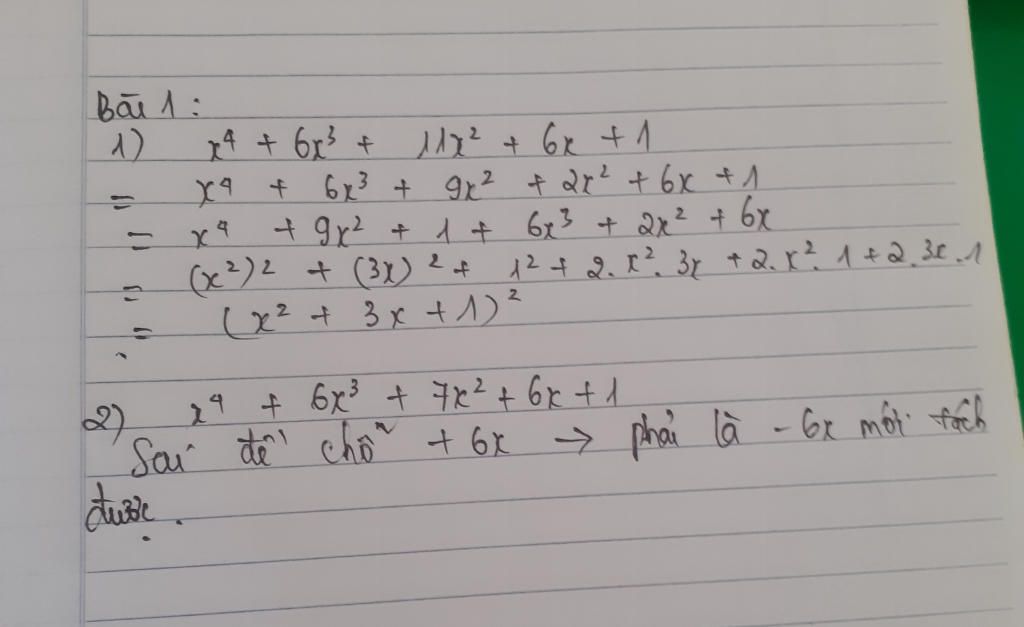 Bài 1 :
1) x⁴ + 6x³ + 11x² + 6x + 1
= x⁴ + 6x³ + 9x² + 2x² + 6x + 1
= x⁴ + 9x² + 1 + 6x³ + 2x² + 6x
= (x²)² + (3x)² + 1² + 2.x².3x + 2.x².1 + 2.3x.1
= (x² + 3x + 1)²
2) x⁴ + 6x³ + 7x² + 6x + 1
Sai đề chỗ + 6x → phải là - 6x mới tách
được.